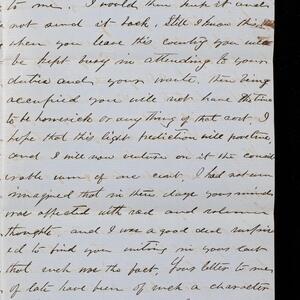 to me. I would then keep it and
not send it back. Still I know this
when you leave this country you will
be kept busy in attending to your
duties and your wants, then being
occupied you will not have the time
to be homesick or any thing of that sort. I
hope that this light prediction will
and I will now venture on it the consid
erable sum of one cent. I had not even
imagined that in these days your mind
was affected with sad and solemn
thoughts, and I was a good deal surpris
ed to find you writing in your last
that such was the fact. Your letters to me
of late have been of such a character